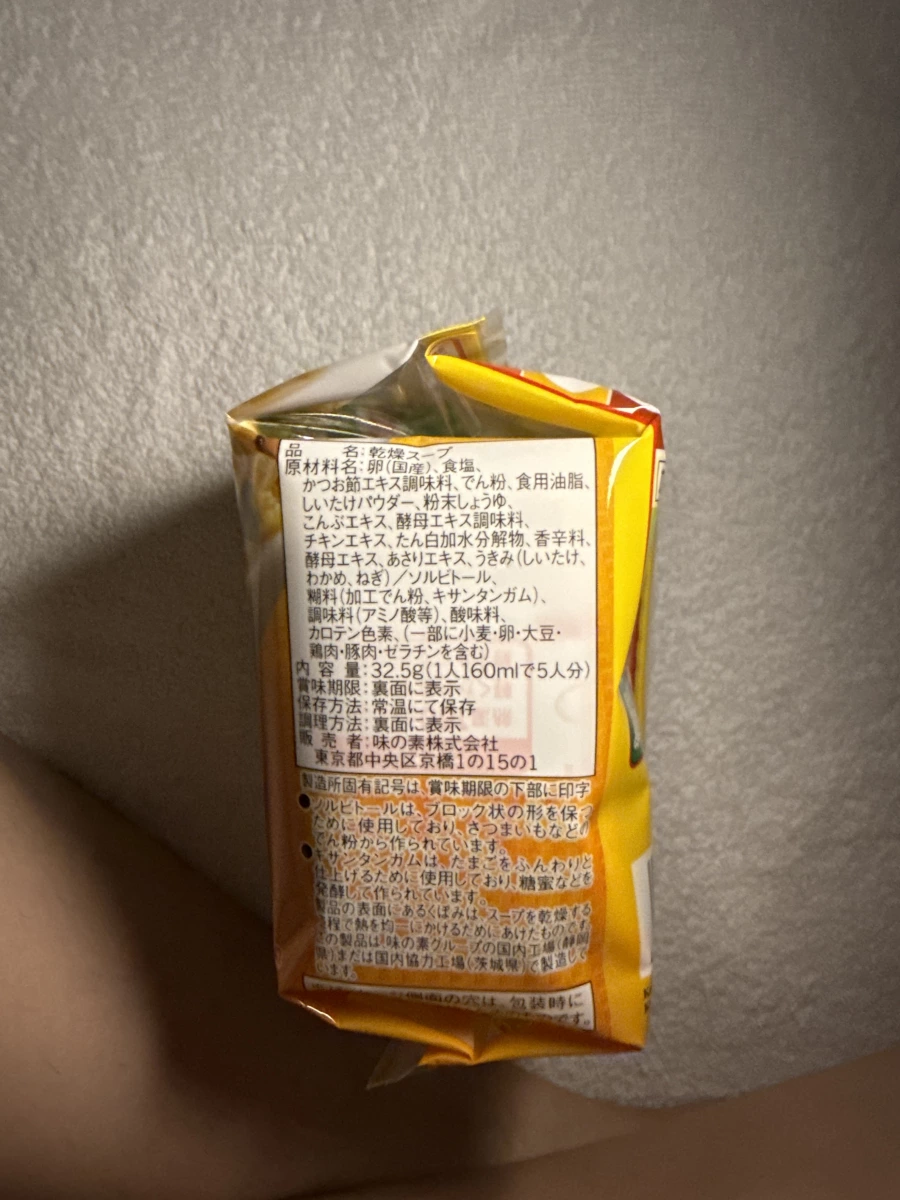 品名:乾燥スープ
原材料名:卵(国産)、食塩、
かつお節エキス調味料、でん粉、食用油脂、
しいたけパウダー、粉末しょうゆ、
こんぶエキス、酵母エキス調味料、
チキンエキス、たん白加水分解物、香辛料、
酵母エキス、あさりエキス、うきみ(しいたけ、
わかめ、ねぎ)/ソルビトール、
糊料(加工でん粉、キサンタンガム)、
調味料(アミノ酸等)、酸味料、
カロテン色素、(一部に小麦・卵・大豆・
鶏肉・豚肉・ゼラチンを含む)
内容量:32.5g(1人160mlで5人分)
賞味期限:裏面に表示
保存方法:常温にて保存
調理方法:裏面に表示
販売者:味の素株式会社
東京都中央区京橋1の15の1
製造所固有記号は、賞味期限の下部に印字
●ソルビトールは、ブロック状の形を保つ
ために使用しており、さつまいもなどの
でん粉から作られています。
●キサンタンガムは、たまごをふんわりと
仕上げるために使用しており、糖蜜などを
発酵して作られています。
製品の表面にあるくぼみは、スープを乾燥する
過程で熱を均一にかけるためにあけたものです。
この製品は味の素グループの国内工場(静岡
県)または国内協力工場(茨城県)で製造して
います。
側面の穴は、包装時に
です。